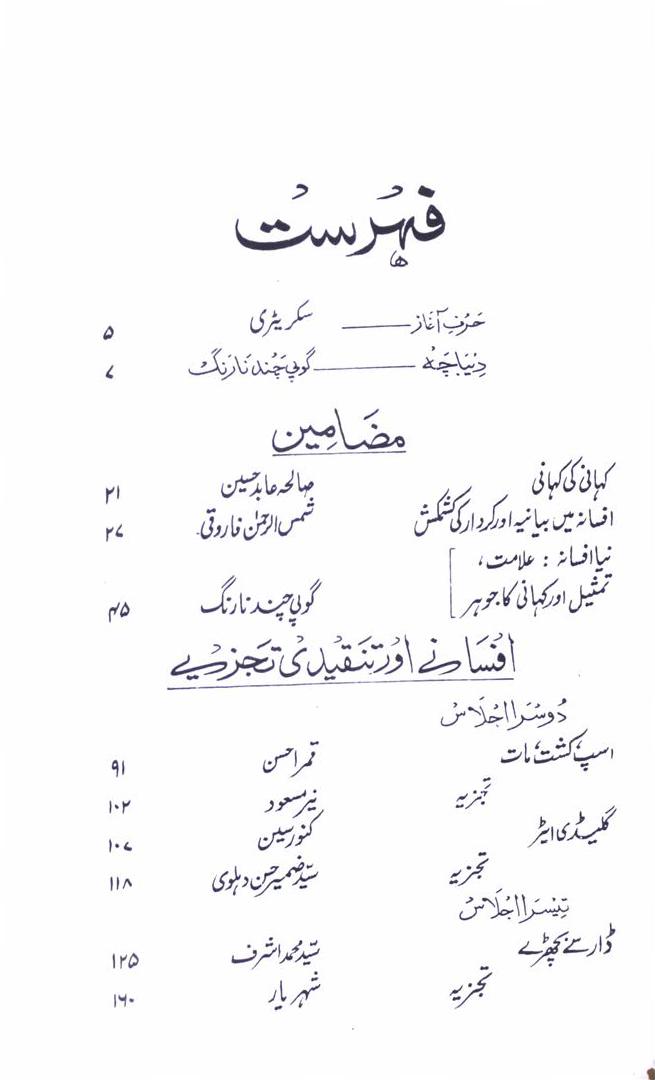 فہرست
حرفِ آغاز ——— سکریٹری ۵
دیباچہ ——— گوپی چند نارنگ ۷
مضامین
کہانی کی کہانی صالحہ عابد حسین ۲۱
افسانہ میں بیانیہ اور کردار کی کشمکش شمس الرحمٰن فاروقی ۲۷
نیا افسانہ : علامت،
تمثیل اور کہانی کا جوہر گوپی چند نارنگ ۴۵
افسانے اور تنقیدی تجزیے
دوسرا اجلاس
اسپ کشت مات قمر احسن ۹۱
تجزیہ نیر مسعود ۱۰۲
گلیڈی ایٹر کنور سین ۱۰۷
تجزیہ سیّد ضمیر حسن دہلوی ۱۱۸
تیسرا اجلاس
ڈار سے بچھڑے سیّد محمد اشرف ۱۲۵
تجزیہ شہر یار ۱۶۰